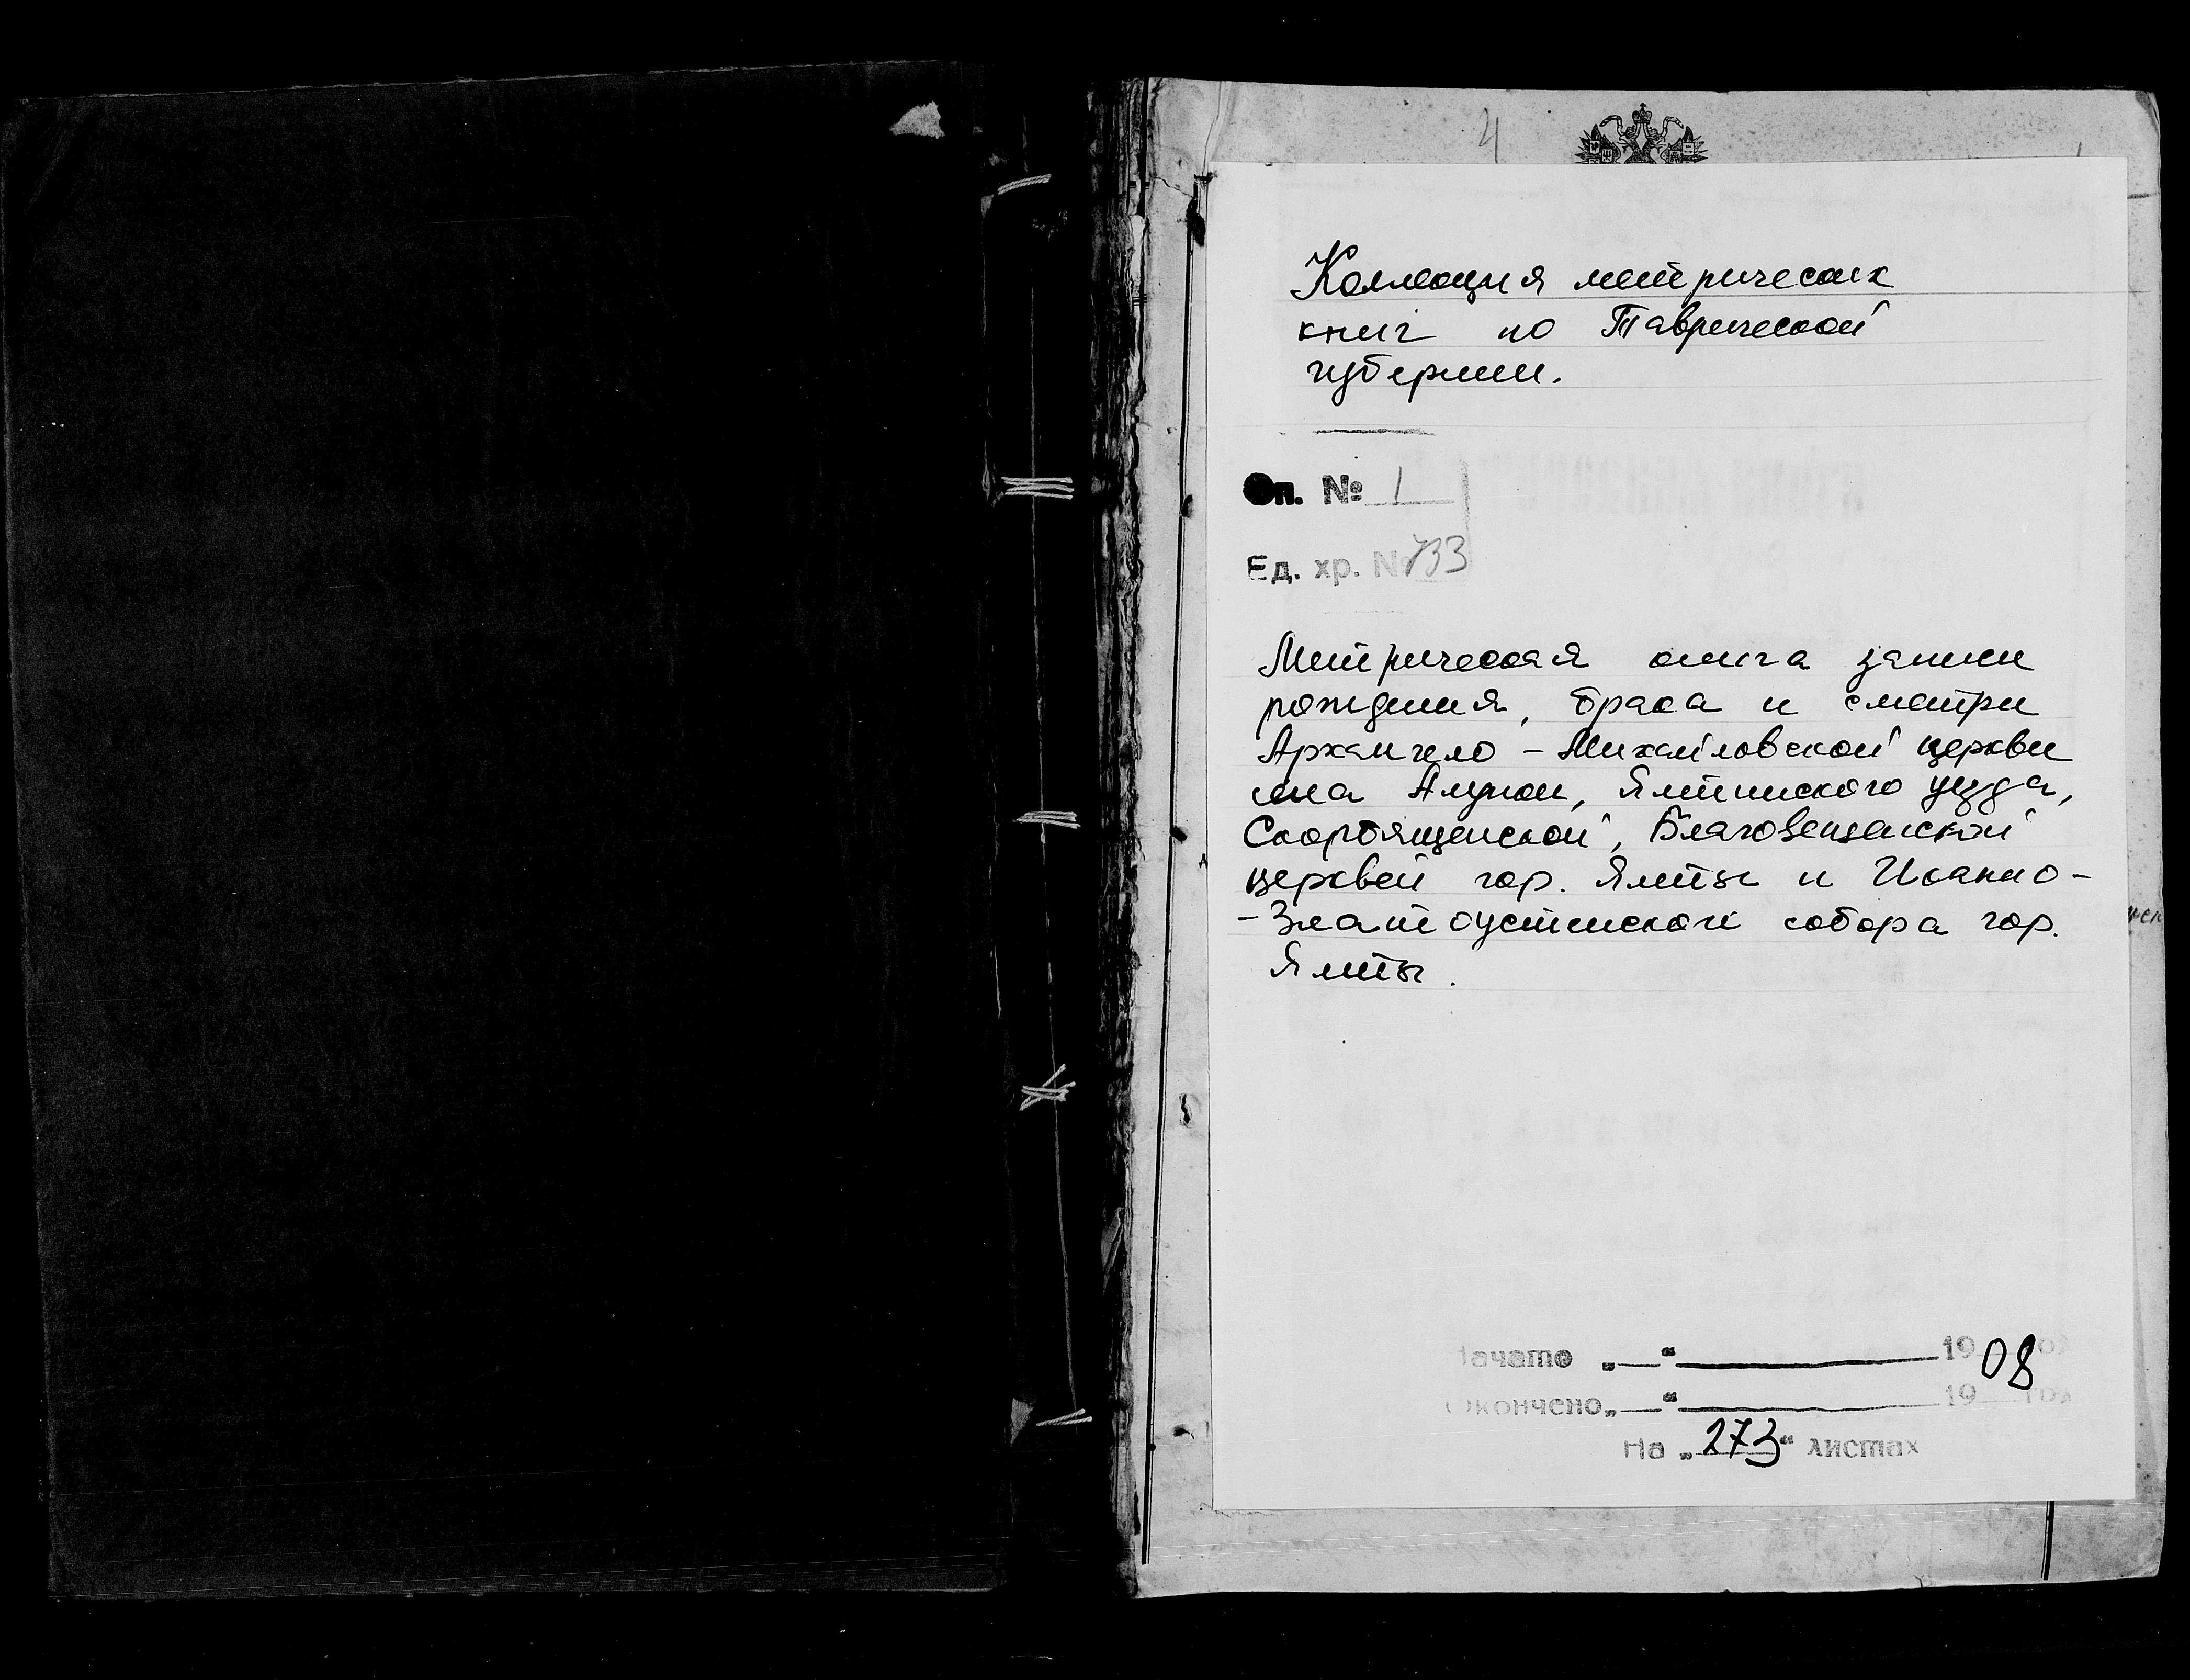 4
Коллекция метрических
книг по Таврической
губернии.
Оп. № 1
Ед. хр. № 733
Метрическая книга записи
рождения, брака и смерти
Архангело-Михайловской церкви
села Алупки, Ялтинского уезда,
Скорбященской, Благовещенской
церквей гор. Ялты и Иоанно-
-Златоустинской собора гор.
Ялты.
Начато „—“ 1908 год
Окончено „—“ 19 год
На „273“ листах